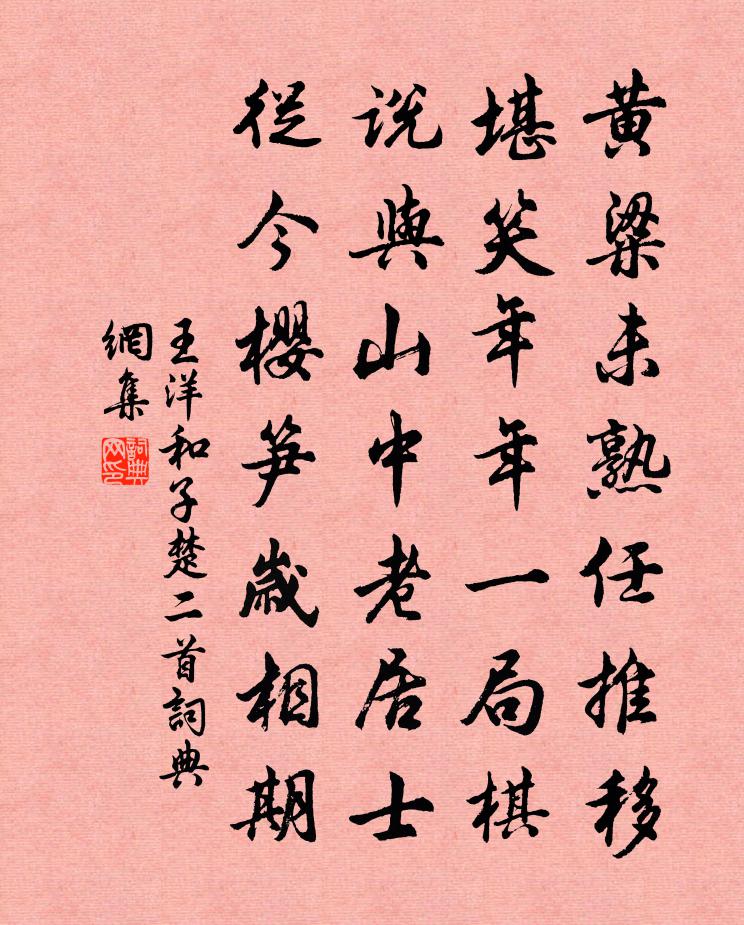 黄粱未熟任推移
堪笑年年一局棋
説與山中老居士
從今櫻笋歲相期
王洋和子楚二首詞典
網集
詞典網印